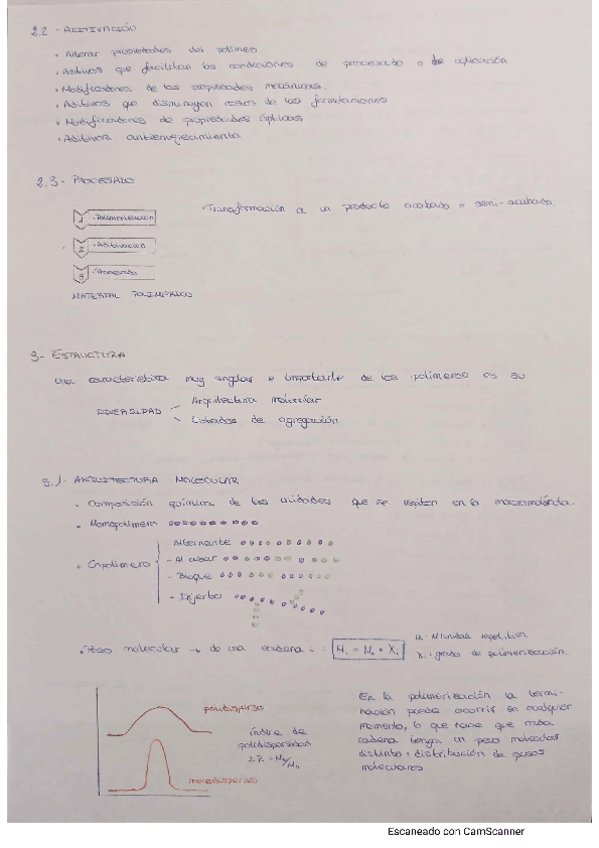 2.2 - ADITIVACIÓN
· Alterar propiedades del polímero
· Aditivos que facilitan las condiciones de procesado o de aplicación
· Modificadores de las propiedades mecánicas.
· Aditivos que disminuyen costes de las formulaciones
· Modificadores de propiedades ópticas
· Aditivos antienvejecimiento
2.3 - PROCESADO
· Transformación a un producto acabado o semi-acabado.
1 · Polimerización
2 · Aditivación
3 · Procesado
MATERIAL POLIMÉRICO
3- ESTRUCTURA
Una característica muy singular e importante de los polímeros es su
DIVERSIDAD
Arquitectura molecular
Estados de agregación
3.1- ARQUITECTURA MOLECULAR
· Composición química de las unidades que se repiten en la macromolécula.
· Homopolímero
· Copolímero
- Alternante
- Al azar
- Bloque
- Injerto
· Peso molecular → de una cadena i : Mi = Mo • Xi
Xi: grado de polimerización
polidisperso
índice de
polidispersidad
monodisperso
En la polimerización la termi-
nación puede ocurrir en cualquier
momento, lo que hace que cada
cadena tenga un peso molecular
distinto: distribución de pesos
moleculares
Escaneado con CamScanner